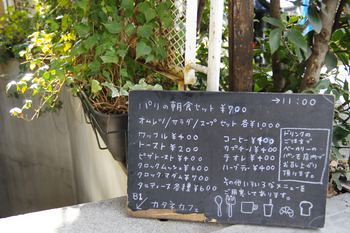 →11:00
パリの朝食セット ¥700
オムレツ/サラダ/スープセット 各¥1000
ワッフル ¥400
トースト ¥200
ピザトースト ¥400
クロックムッシュ ¥600
クロックマダム ¥700
タルティーヌ 各種 ¥600
コーヒー ¥400
カプチーノ ¥400
カフェオレ ¥400
ハーブティー ¥400
その他いろいろなメニューを
ご用意しております。
ドリンクの
ご注文で
ベーカリーの
パンを店内で
お召し上がり
頂けます
B1
↙ カタネカフェ